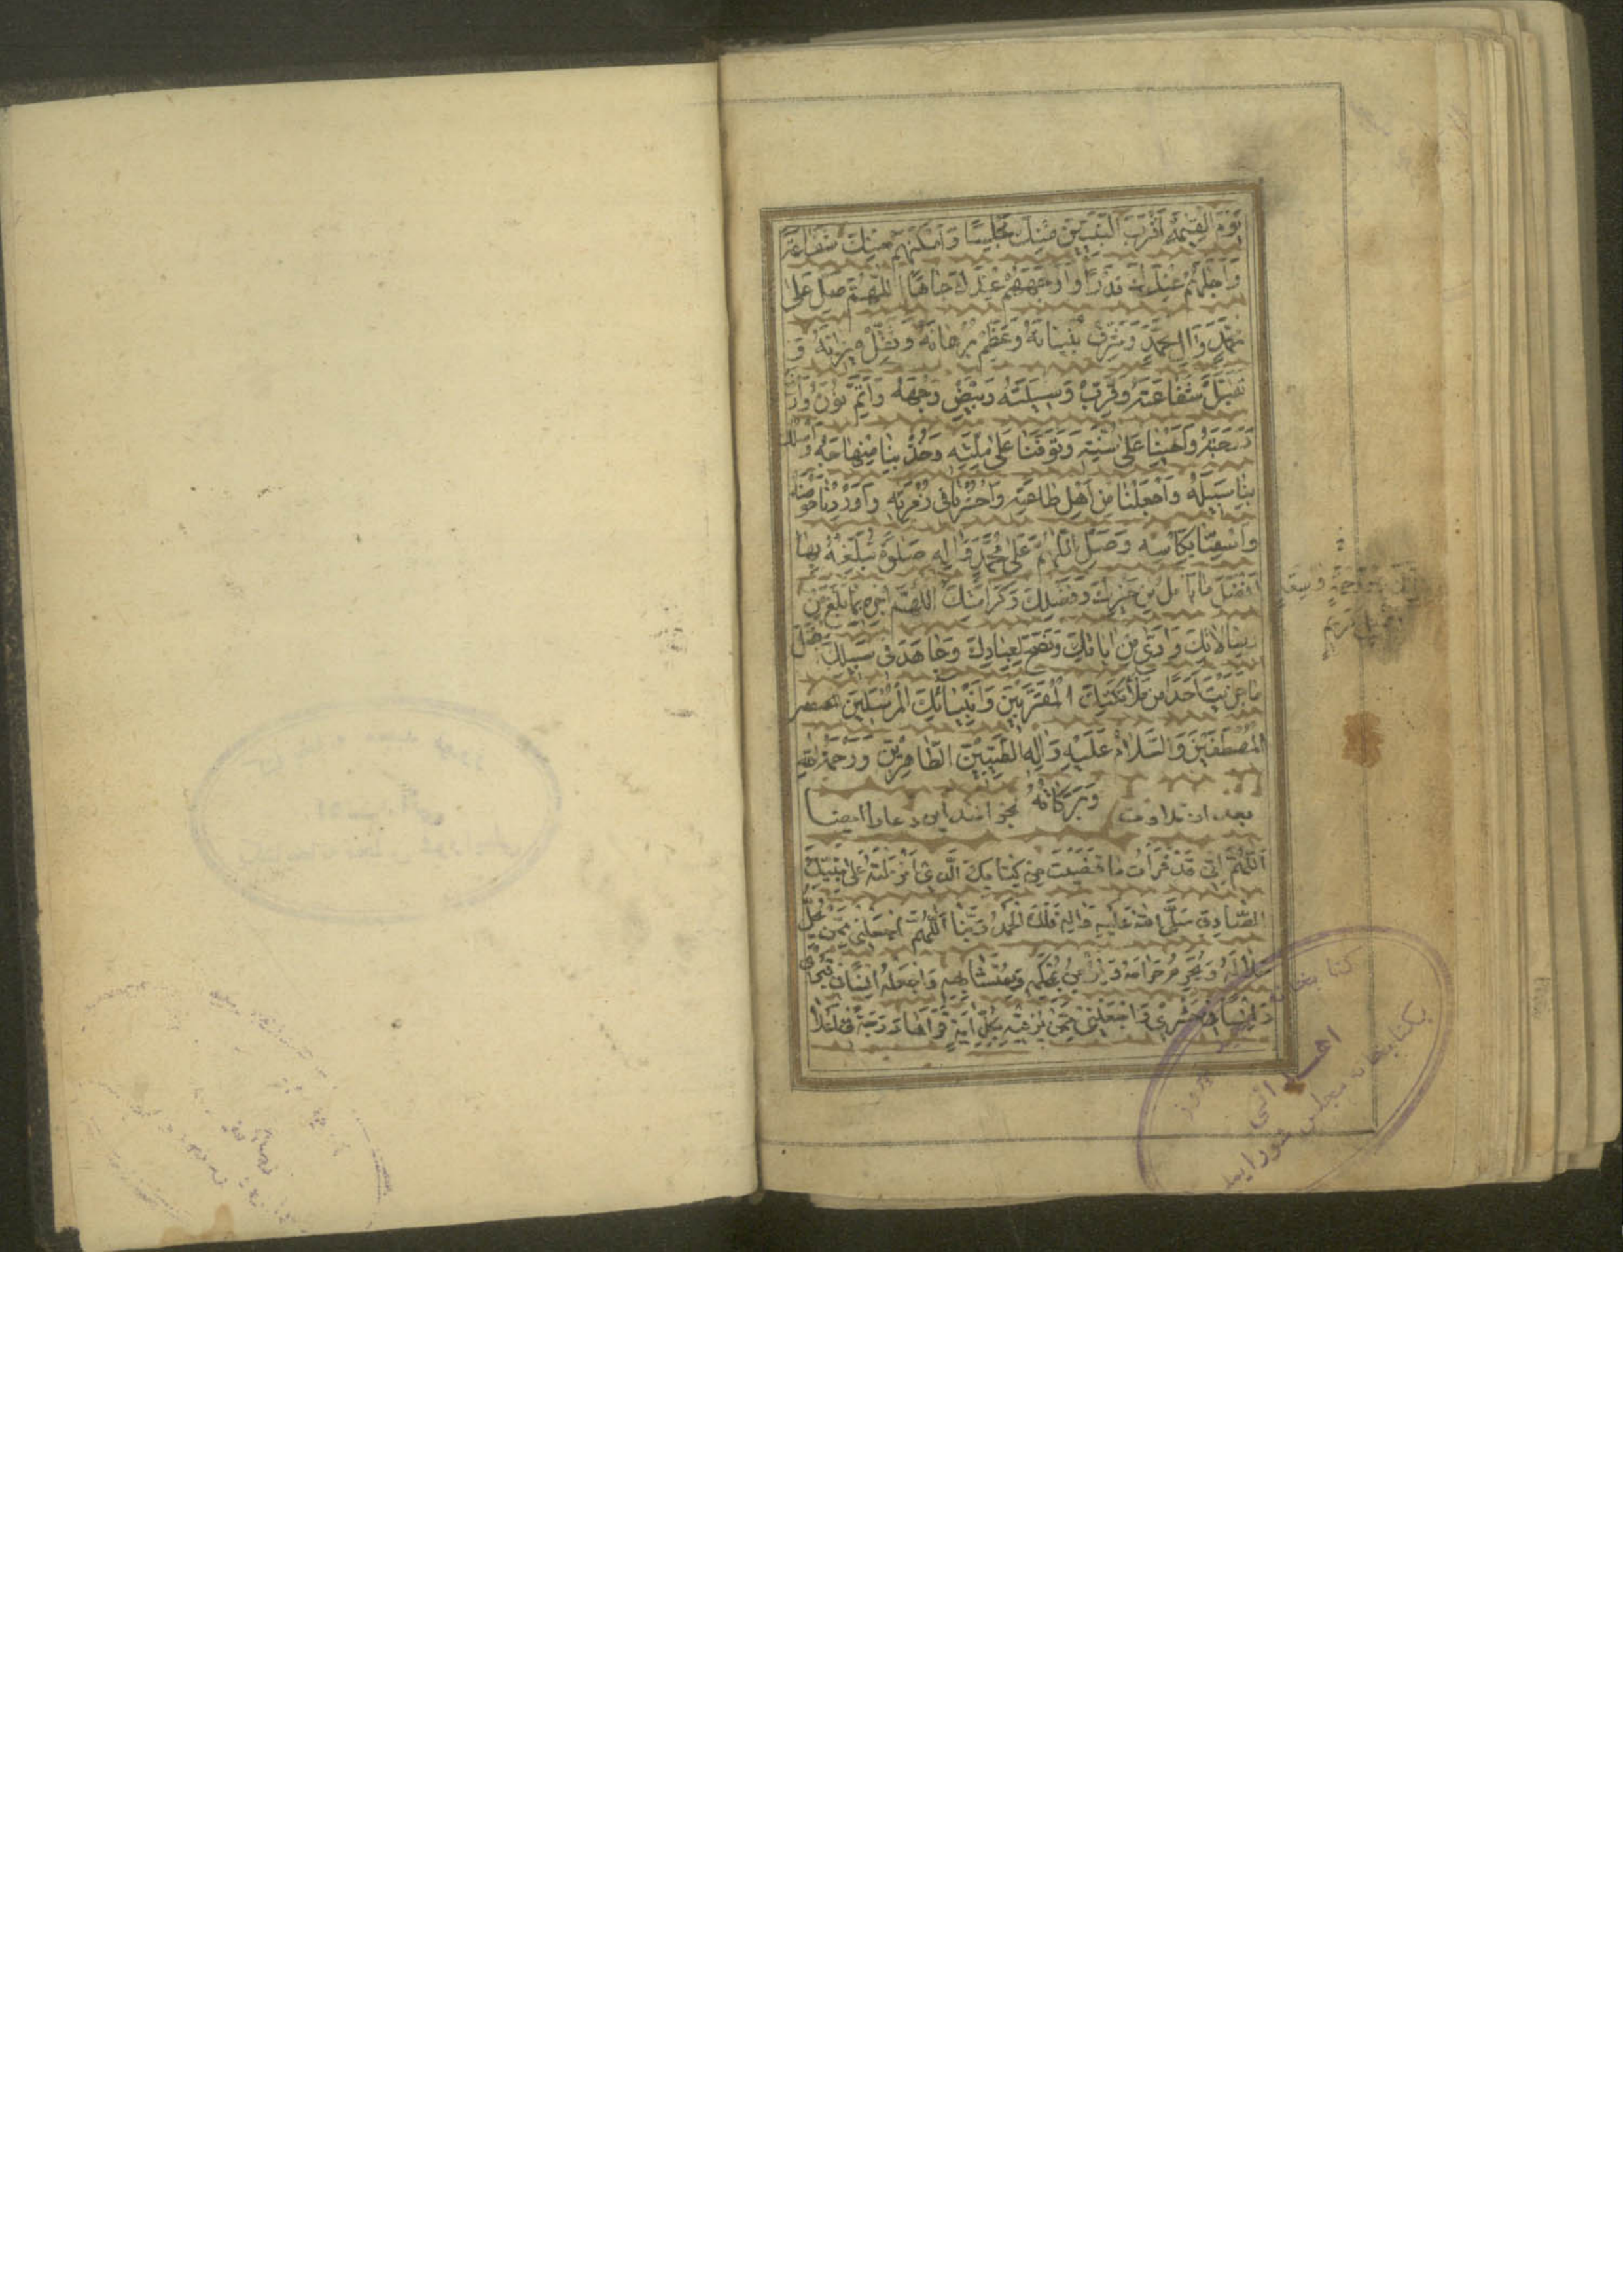 يَوْمَ الْقِيٰمَةِ اَقْرَبَ النَّبِيّيٖنَ مِنْكَ مَجْلِسًا وَاَمْكَنَهُمْ مِنْكَ شَفَاعَةً
وَاَجَلَّهُمْ عِنْدَكَ قَدْرًا وَاَوْجَهَهُمْ عِنْدَكَ جَاهًا اَللّٰهُمَّ صَلِّ عَلىٰ
مُحَمَّدٍ وَاٰلِ مُحَمَّدٍ وَشَرِّفْ بُنْيَانَهُ وَعَظِّمْ بُرْهَانَهُ وَثَقِّلْ مِيزَانَهُ وَ
تَقَبَّلْ شَفَاعَتَهُ وَقَرِّبْ وَسِيلَتَهُ وَبَيِّضْ وَجْهَهُ وَاَتِمَّ نُورَهُ وَارْفَعْ
دَرَجَتَهُ وَاَحْيِنَا عَلىٰ سُنَّتِهِ وَتَوَفَّنَا عَلىٰ مِلَّتِهِ وَخُذْ بِنَا مِنْهَاجَهُ وَاسْلُكْ
بِنَا سَبِيلَهُ وَاجْعَلْنَا مِنْ اَهْلِ طَاعَتِهِ وَاحْشُرْنَا فِي زُمْرَتِهِ وَاَوْرِدْنَا حَوْضَهُ
وَاَسْقِنَا بِكَأْسِهِ وَصَلِّ اللّٰهُمَّ عَلىٰ مُحَمَّدٍ وَاٰلِهِ صَلٰوةً تُبَلِّغُهُ بِهَا
اَفْضَلَ مَا يَأْمَلُ مِنْ خَيْرِكَ وَفَضْلِكَ وَكَرَامَتِكَ اَللّٰهُمَّ اجْزِهِ بِمَا بَلَّغَ مِنْ
رِسَالَاتِكَ وَاَدّىٰ مِنْ اٰيَاتِكَ وَنَصَحَ لِعِبَادِكَ وَجَاهَدَ فِي سَبِيلِكَ اَفْضَلَ
مَا جَزَيْتَ اَحَدًا مِنْ مَلَائِكَتِكَ الْمُقَرَّبِينَ وَاَنْبِيَائِكَ الْمُرْسَلِينَ
الْمُصْطَفَيْنَ وَالسَّلَامُ عَلَيْهِ وَاٰلِهِ الطَّيِّبِينَ الطَّاهِرِينَ وَرَحْمَةُ اللهِ
وَبَرَكَاتُهُ
بعد از تلاوت بخوانند این دعا را ایضا
اَللّٰهُمَّ اِنِّي قَدْ قَرَأْتُ مَا قَضَيْتَ مِنْ كِتَابِكَ الَّذِي اَنْزَلْتَهُ عَلىٰ نَبِيِّكَ
الصَّادِقِ صَلَّى اللهُ عَلَيْهِ وَاٰلِهِ فَلَكَ الْحَمْدُ رَبَّنَا اَللّٰهُمَّ اجْعَلْنِي مِمَّنْ يُحِلُّ
حَلَالَهُ وَيُحَرِّمُ حَرَامَهُ وَيُؤْمِنُ بِمُحْكَمِهِ وَمُتَشَابِهِهِ وَاجْعَلْهُ اُنْسًا فِي قَبْرِي
وَاُنْسًا فِي حَشْرِي وَاجْعَلْنِي مِمَّنْ تُرَقِّيهِ بِكُلِّ اٰيَةٍ قَرَأَهَا دَرَجَةً فِي اَعْلَا
کتابخانه
اهدائی
بکتابخانه مجلس شورایملی